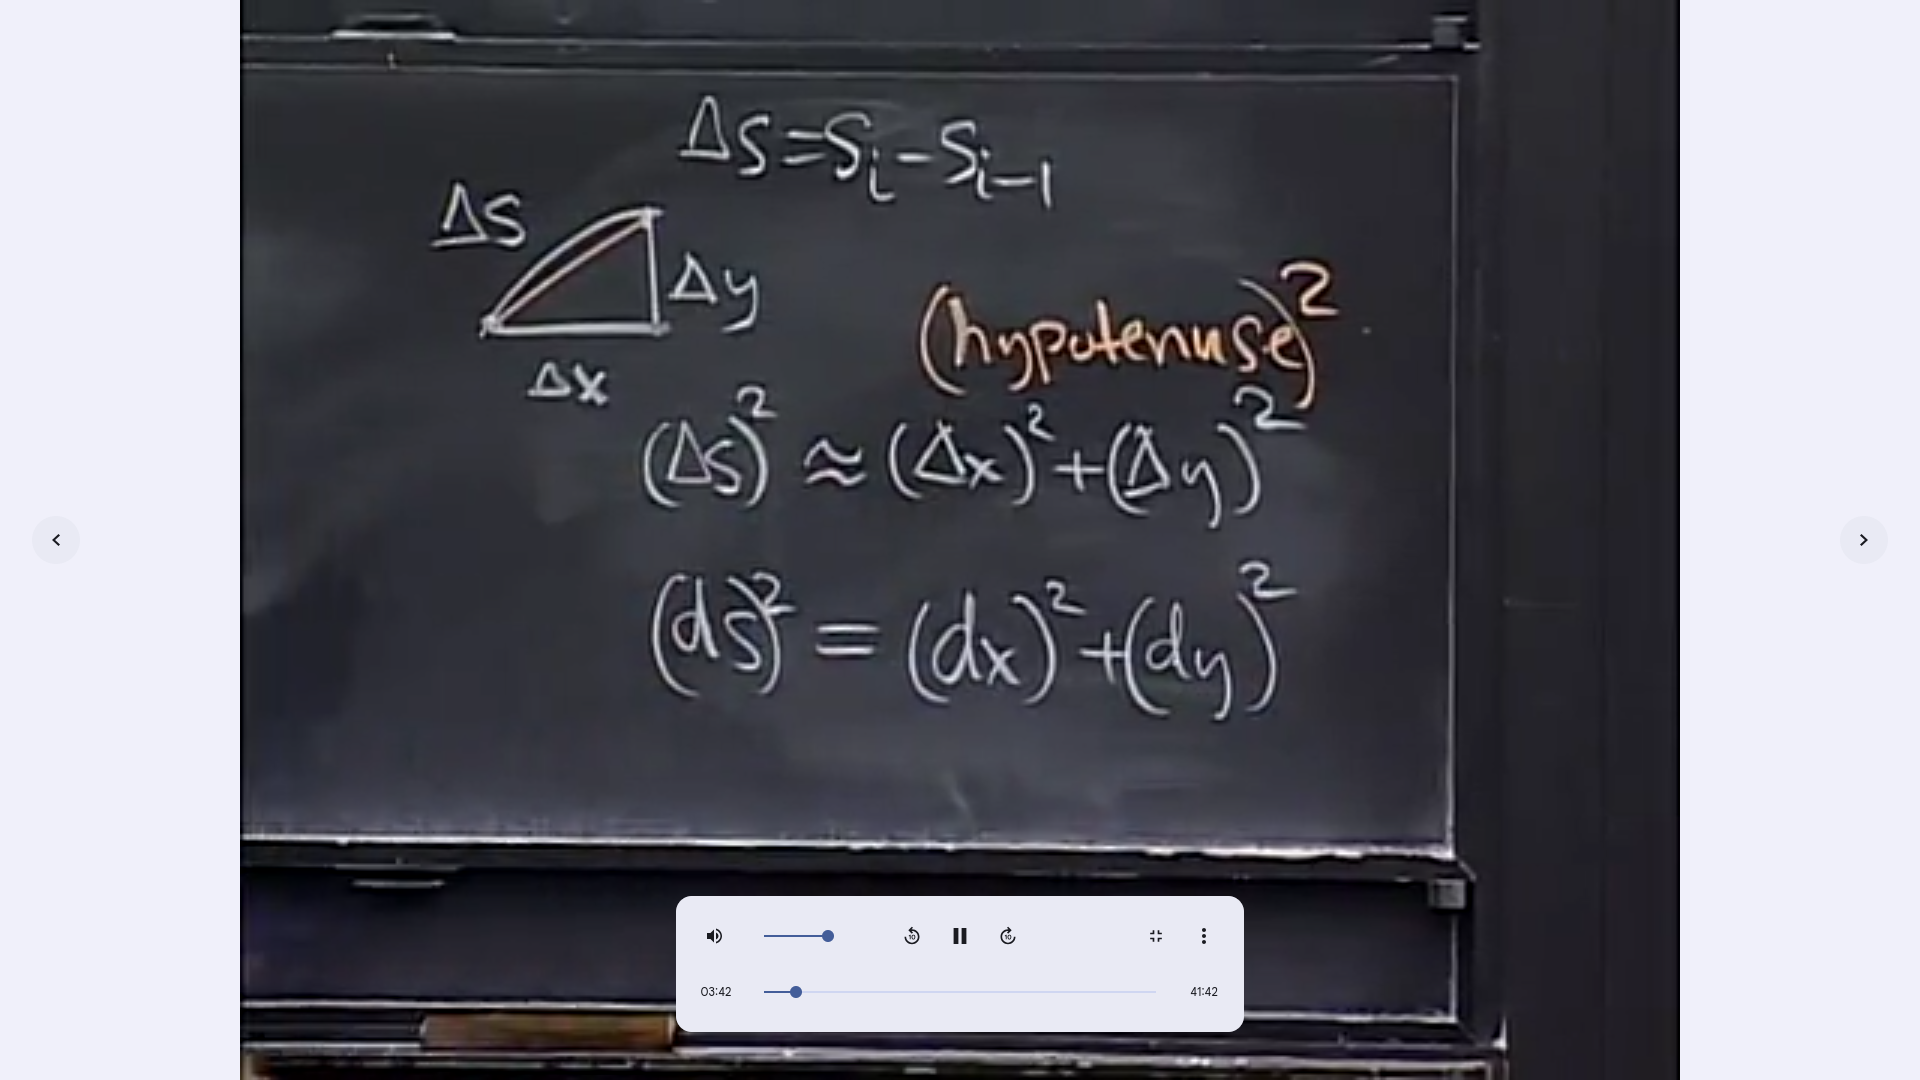 Δs = s_i - s_{i-1}
Δs
Δy
Δx
(hypotenuse)²
(Δs)² ≈ (Δx)² + (Δy)²
(ds)² = (dx)² + (dy)²
10 10
03:42 41:42